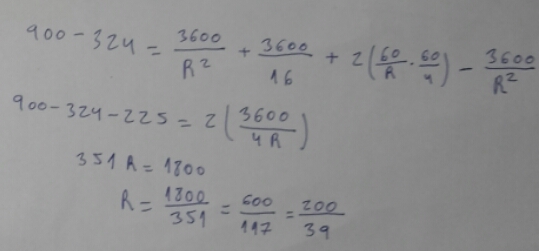 900-324 = 3600/R² + 3600/16 + 2(60/R · 60/4) - 3600/R²
900-324-225 = 2(3600/4R)
351R = 1800
R = 1800/351 = 600/117 = 200/39